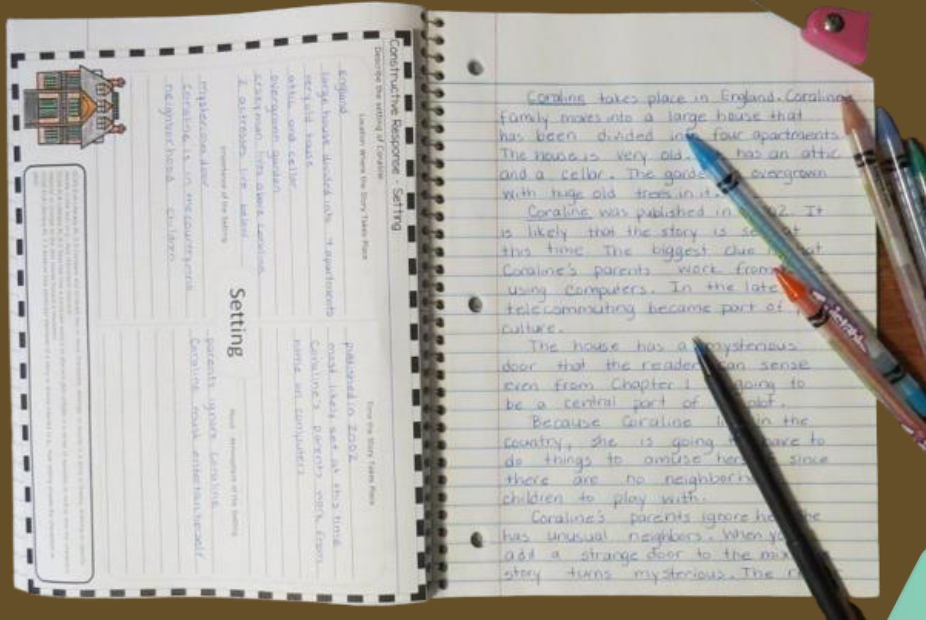 Constructive Response - Setting
Describe the setting of Coraline
Location Where the Story Takes Place
England
large house divided into 4 apartments
very old house
attic and cellar
overgrown garden
crazy man lives above Coraline
2 actresses live below
Time the Story Takes Place
published in 2002
most likely set at this time
Coraline's parents work from
home on computers
Setting
Importance of the Setting
mysterious door
Coraline is in the country, no
neighborhood children
Mood/Atmosphere of the Setting
parents ignore Coraline
Coraline must entertain herself
Coraline takes place in England. Coraline
family moves into a large house that
has been divided into four apartments.
The house is very old. has an attic
and a cellar. The garde overgrown
with huge old trees in it.
Coraline was published in 02. It
is likely that the story is se at
this time. The biggest clue at
Coraline's parents work from
using computers. In the late
telecommuting became part of
culture.
The house has a mysterious
door that the reader can sense
even from Chapter 1 going to
be a central part of plot.
Because Coraline li in the
country, she is going have to
do things to amuse her since
there are no neighborh
children to play with.
Coraline's parents ignore he
has unusual neighbors. When yo
add a strange door to the mix
story turns mysterious. The r